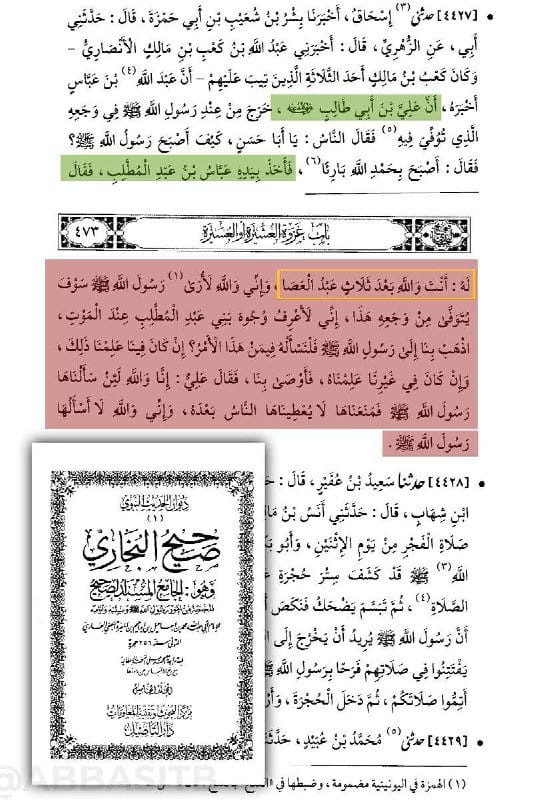 • [٤٤٢٧] حدثني (٣) إِسْحَاقُ، أَخْبَرَنَا بِشْرُ بْنُ شُعَيْبِ بْنِ أَبِي حَمْزَةَ، قَالَ: حَدَّثَنِي
أَبِي، عَنِ الزُّهْرِيِّ، قَالَ: أَخْبَرَنِي عَبْدُ اللَّهِ بْنُ كَعْبِ بْنِ مَالِكٍ الْأَنْصَارِيُّ –
وَكَانَ كَعْبُ بْنُ مَالِكٍ أَحَدَ الثَّلَاثَةِ الَّذِينَ تِيبَ عَلَيْهِمْ – أَنَّ عَبْدَ اللَّهِ (٤) بْنَ عَبَّاسٍ
أَخْبَرَهُ، أَنَّ عَلِيَّ بْنَ أَبِي طَالِبٍ ، خَرَجَ مِنْ عِنْدِ رَسُولِ اللَّهِ ﷺ فِي وَجَعِهِ
الَّذِي تُوُفِّيَ فِيهِ (٥) فَقَالَ النَّاسُ: يَا أَبَا حَسَنٍ، كَيْفَ أَصْبَحَ رَسُولُ اللَّهِ ﷺ؟
فَقَالَ: أَصْبَحَ بِحَمْدِ اللَّهِ بَارِئًا (٦)، فَأَخَذَ بِيَدِهِ عَبَّاسُ بْنُ عَبْدِ الْمُطَّلِبِ، فَقَالَ
باب غزوة العشيرة أو العسيرة ٤٧٣
لَهُ: أَنْتَ وَاللَّهِ بَعْدَ ثَلَاثٍ عَبْدُ الْعَصَا، وَإِنِّي وَاللَّهِ لَأُرَىٰ (١) رَسُولَ اللَّهِ ﷺ سَوْفَ
يُتَوَفَّىٰ مِنْ وَجَعِهِ هَذَا، إِنِّي لَأَعْرِفُ وُجُوهَ بَنِي عَبْدِ الْمُطَّلِبِ عِنْدَ الْمَوْتِ،
اذْهَبْ بِنَا إِلَىٰ رَسُولِ اللَّهِ ﷺ فَلْنَسْأَلْهُ فِيمَنْ هَذَا الْأَمْرُ؟ إِنْ كَانَ فِينَا عَلِمْنَا ذَلِكَ،
وَإِنْ كَانَ فِي غَيْرِنَا عَلِمْنَاهُ، فَأَوْصَىٰ بِنَا، فَقَالَ عَلِيٌّ: إِنَّا وَاللَّهِ لَئِنْ سَأَلْنَاهَا
رَسُولَ اللَّهِ ﷺ فَمَنَعَنَاهَا لَا يُعْطِينَاهَا النَّاسُ بَعْدَهُ، وَإِنِّي وَاللَّهِ لَا أَسْأَلُهَا
رَسُولَ اللَّهِ ﷺ.
• [٤٤٢٨] حدثنا سَعِيدُ بْنُ عُفَيْرٍ، قَالَ:
ابْنِ شِهَابٍ، قَالَ: حَدَّثَنِي أَنَسُ بْنُ
صَلَاةِ الْفَجْرِ مِنْ يَوْمِ الِاثْنَيْنِ، وَأَبُو
اللَّهِ (٣) ﷺ قَدْ كَشَفَ سِتْرَ حُجْرَةِ
الصَّلَاةِ (٤)، ثُمَّ تَبَسَّمَ يَضْحَكُ فَنَكَصَ
أَنَّ رَسُولَ اللَّهِ ﷺ يُرِيدُ أَنْ يَخْرُجَ إِلَى
يَفْتَتِنُوا فِي صَلَاتِهِمْ فَرَحًا بِرَسُولِ
أَتِمُّوا صَلَاتَكُمْ، ثُمَّ دَخَلَ الْحُجْرَةَ،
• [٤٤٢٩] حدثني (٥) مُحَمَّدُ بْنُ عُبَيْدٍ،
(١) الهمزة في اليونينية مضمومة، وضبطها في
ديوان الحديث النبوي
(١)
صحيح البخاري
وهو: الجامع المسند الصحيح
مركز البحوث وتقنية المعلومات
دار التأصيل
@ABBASITB